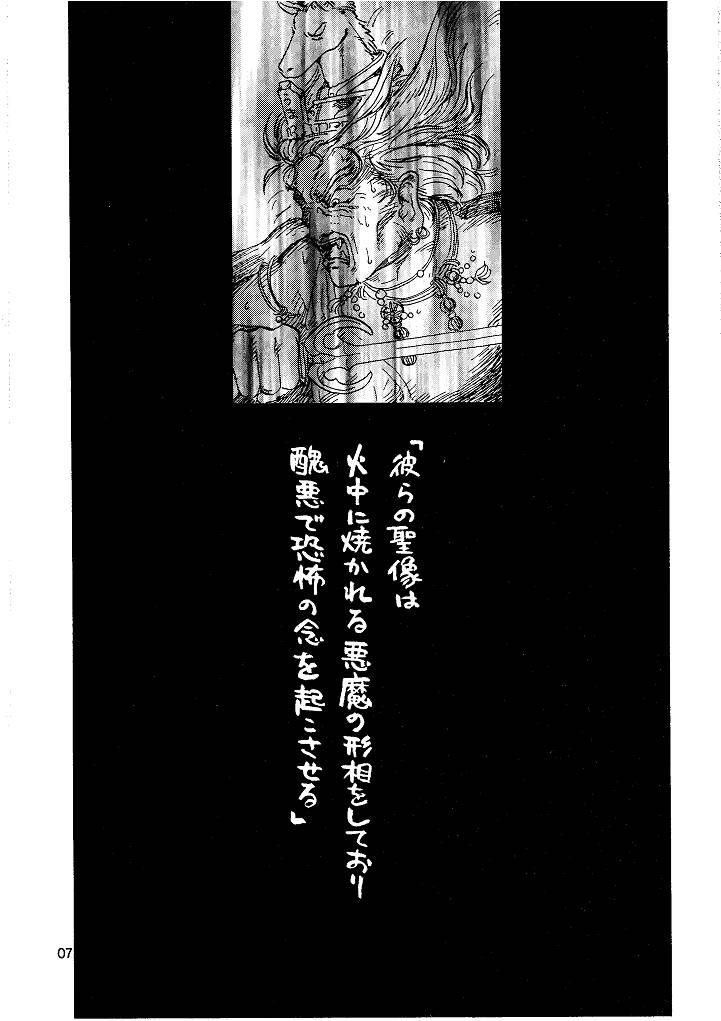 「彼らの聖像は
火中に焼かれる悪魔の形相をしており
醜悪で恐怖の念を起こさせる」
07